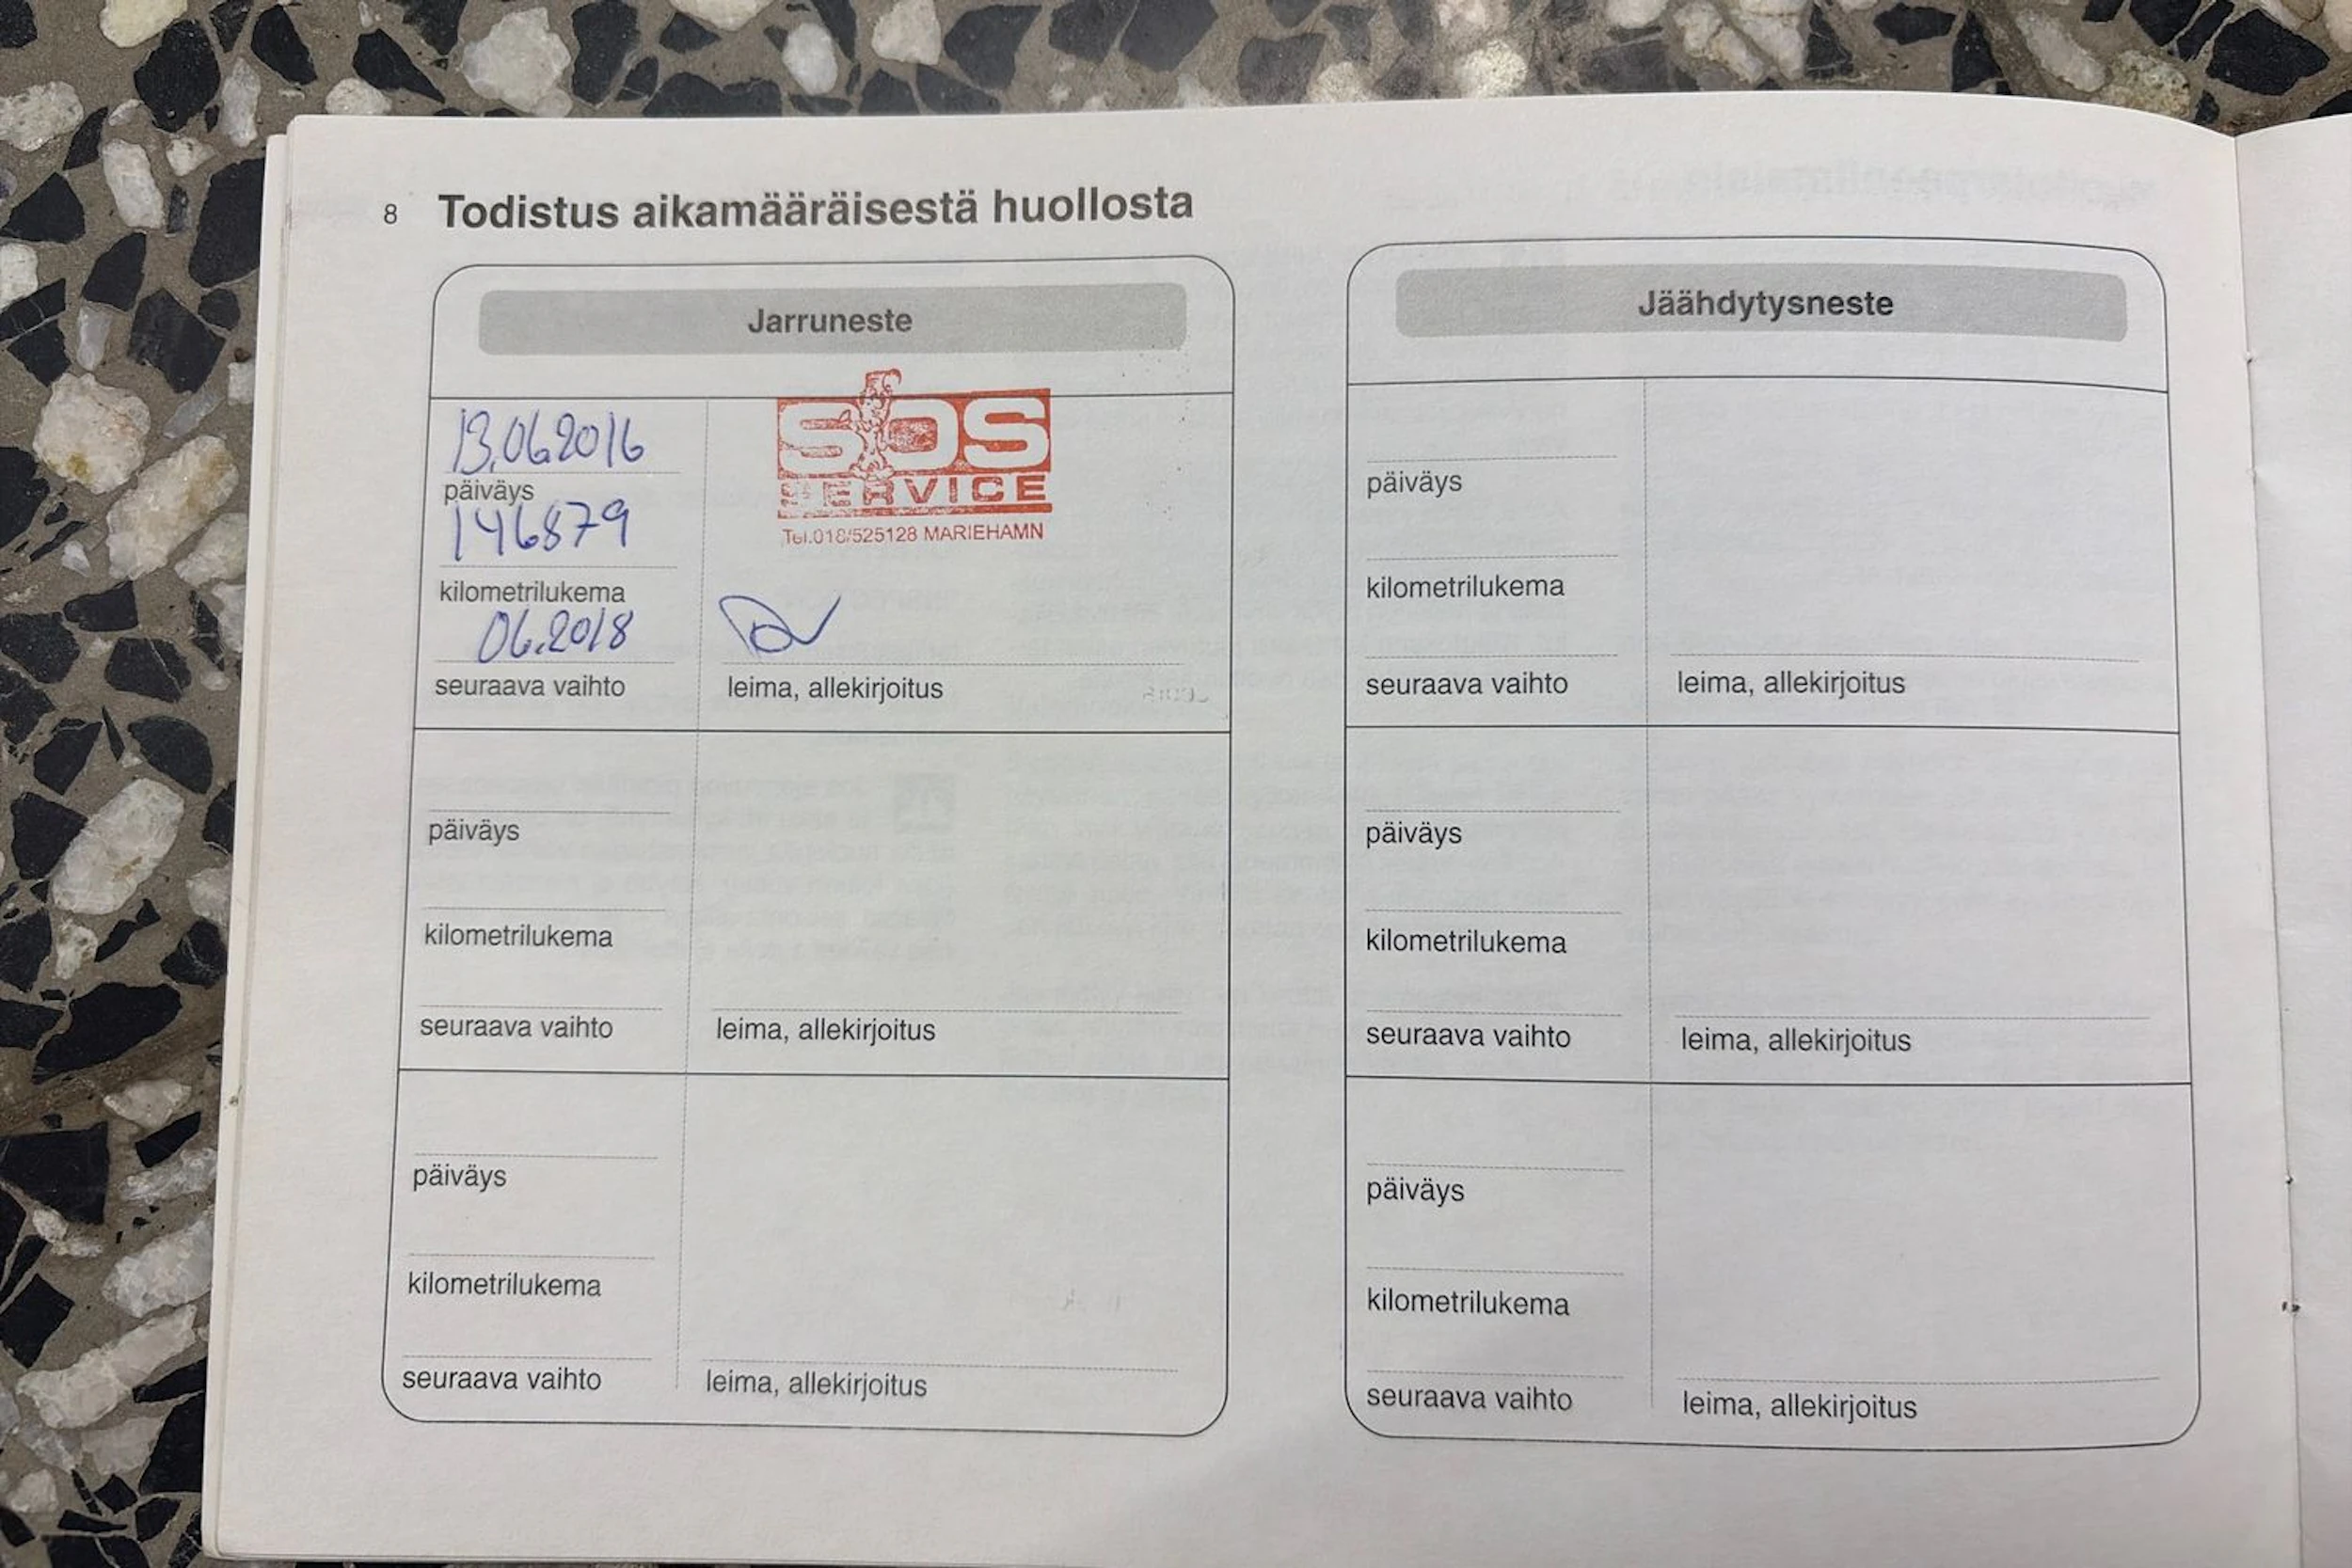 8 Todistus aikamääräisestä huollosta
Jarruneste
13.06.2016
päiväys
146879
kilometrilukema
06.2018
seuraava vaihto
SOS
SERVICE
Tel.018/525128 MARIEHAMN
leima, allekirjoitus
päiväys
kilometrilukema
seuraava vaihto
leima, allekirjoitus
päiväys
kilometrilukema
seuraava vaihto
leima, allekirjoitus
Jäähdytysneste
päiväys
kilometrilukema
seuraava vaihto
leima, allekirjoitus
päiväys
kilometrilukema
seuraava vaihto
leima, allekirjoitus
päiväys
kilometrilukema
seuraava vaihto
leima, allekirjoitus